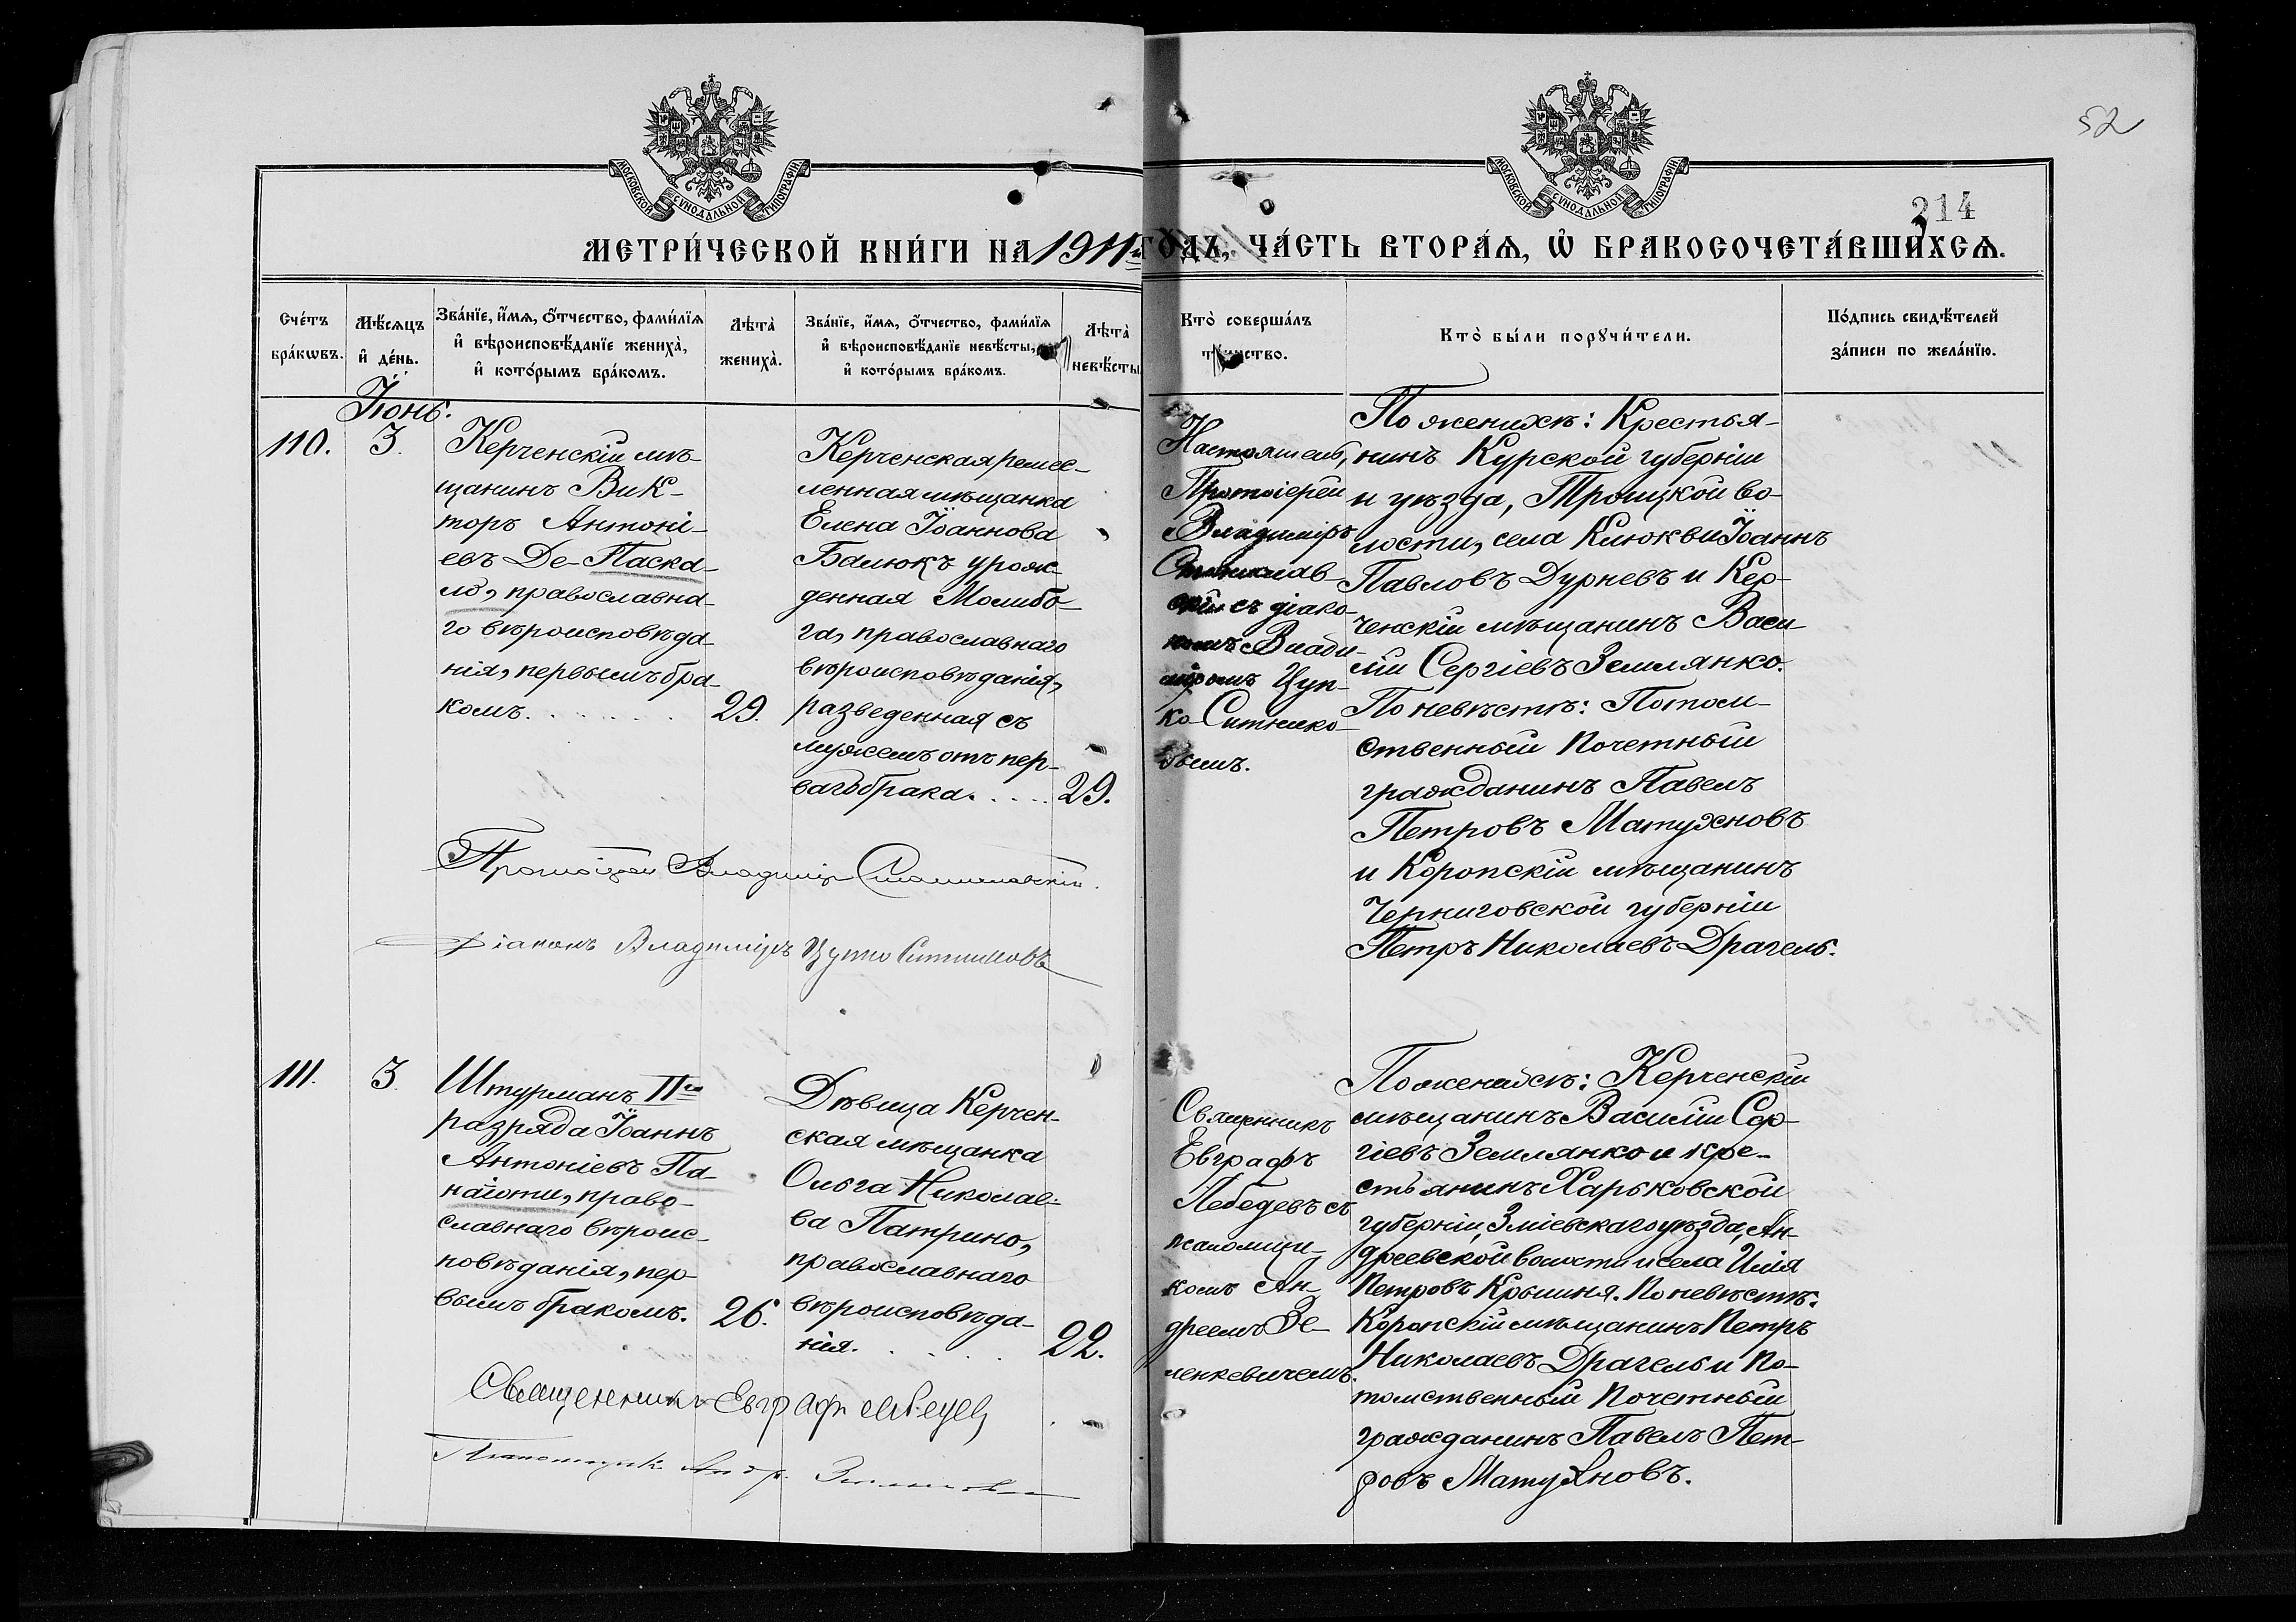 52
214
МОСКОВСКОЙ СѴНОДАЛЬНОЙ ТИПОГРАФІИ
МОСКОВСКОЙ СѴНОДАЛЬНОЙ ТИПОГРАФІИ
МЕТРИ́ЧЕСКОЙ КНИ́ГИ НА 1911 ГО́ДЪ, ЧА́СТЬ ВТОРА́Ѧ, Ѽ БРАКОСОЧЕТА́ВШИХСѦ.
Сче́тъ
бра́кѡвъ.
Мѣ́сяцъ
и҆ де́нь.
Зва́нїе, и҆́мѧ, ѻ҆́тчество, фами́лїѧ
и҆ вѣроисповѣ́данїе жениха̀,
и҆ кото́рымъ бра́комъ.
Лѣта̀
жениха̀.
Зва́нїе, и҆́мѧ, ѻ҆́тчество, фами́лїѧ
и҆ вѣроисповѣ́данїе невѣ́сты,
и҆ кото́рымъ бра́комъ.
Лѣта̀
невѣ́сты
Кто̀ соверша́лъ
та́инство.
Кто̀ бы́ли порꙋчи́тели.
По́дпись свидѣ́телей
за́писи по жела́нїю.
Іюнь.
110.
3.
Керченскій мѣ-
щанинъ Вик-
торъ Антоні-
евъ Де-Паска-
ло, православна-
го вѣроисповѣда-
нія, первымъ бра-
комъ.
29.
Керченская ремес-
ленная мѣщанка
Елена Іоаннова
Балюкъ урож-
денная Молибо-
га, православнаго
вѣроисповѣданія,
разведенная съ
мужемъ отъ пер-
ваго брака.
29.
Настоятель,
Протоіерей
Владиміръ
Станислав-
скій съ діако-
номъ Влади-
міромъ Цуп-
ко-Ситнико-
вымъ.
По женихѣ: Крестья-
нинъ Курской губерніи
и уѣзда, Троицкой во-
лости, села Клюкви Іоаннъ
Павловъ Дурневъ и Кер-
ченскій мѣщанинъ Васи-
лій Сергіевъ Землянко.
По невѣстѣ: Потом-
ственный почетный
гражданинъ Павелъ
Петровъ Матухновъ
и Коропскій мѣщанинъ
Черниговской губерніи
Петръ Николаевъ Драгель.
Протоіерей Владиміръ Станиславскій.
Діаконъ Владиміръ Цупко Ситниковъ
111.
3.
Штурманъ II го
разряда Іоаннъ
Антоніевъ Па-
наіоти, право-
славнаго вѣроис-
повѣданія, пер-
вымъ бракомъ.
26.
Дѣвица Керчен-
ская мѣщанка
Ольга Николае-
ва Патрино,
православнаго
вѣроисповѣда-
нія.
22.
Священникъ
Евграфъ
Лебедевъ съ
псаломщи-
комъ Ан-
дреемъ Зе-
ленкевичемъ.
По женихѣ: Керченскій
мѣщанинъ Василій Сер-
гіевъ Землянко и кре-
стьянинъ Харьковской
губерніи, Зміевскаго уѣзда, Ан-
дреевской волости и села Илія
Петровъ Крышня. По невѣстѣ:
Коропскій мѣщанинъ Петръ
Николаевъ Драгель и по-
томственный почетный
гражданинъ Павелъ Пет-
ровъ Матухновъ.
Священникъ Евграфъ Лебедевъ
Псаломщикъ Андр.